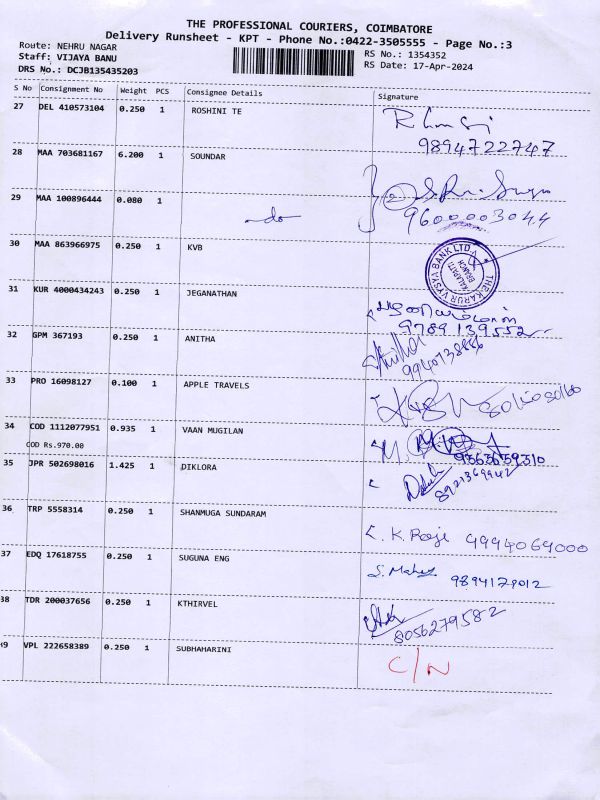 THE PROFESSIONAL COURIERS, COIMBATORE
Delivery Runsheet - KPT - Phone No.:0422-3505555 - Page No.:3
Route: NEHRU NAGAR
Staff: VIJAYA BANU
DRS No.: DCJB135435203
RS No.: 1354352
RS Date: 17-Apr-2024
S No Consignment No Weight PCS Consignee Details Signature
27 DEL 410573104 0.250 1 ROSHINI TE
9894722747
28 MAA 703681167 6.200 1 SOUNDAR
29 MAA 100896444 0.080 1 -do-
9600003044
30 MAA 863966975 0.250 1 KVB
THE KARUR VYSYA BANK LTD.
KALAPATTI
BRANCH
31 KUR 4000434243 0.250 1 JEGANATHAN
9789139552
32 GPM 367193 0.250 1 ANITHA
Anitha
33 PRO 16098127 0.100 1 APPLE TRAVELS
34 COD 1112077951 0.935 1 VAAN MUGILAN
COD Rs.970.00
9363639310
35 JPR 502698016 1.425 1 DIKLORA
36 TRP 5558314 0.250 1 SHANMUGA SUNDARAM
K. Raji 9994069000
37 EDQ 17618755 0.250 1 SUGUNA ENG
S. Mahes 9894179012
38 TDR 200037656 0.250 1 KTHIRVEL
8056279582
H9 VPL 222658389 0.250 1 SUBHAHARINI
C/N